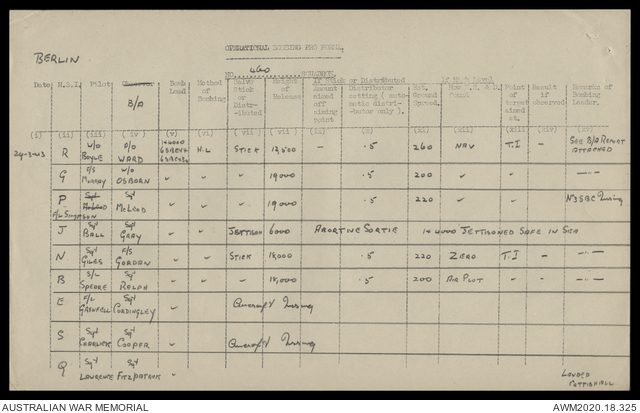 OPERATIONAL BOMBING PRO FORMA.
BERLIN
NO. 460 SQUADRON.
Date H.S.I. Pilot B/A Bomb Load Method of Bombing Salvo Stick or Distributed Height of Release If Stick or Distributed Amount sized off aiming point Distributor setting (automatic distributor only). Ground Speed. Point of target aimed at. Result if observed Remarks of Bombing Leader.
(i) (ii) (iii) (iv) (v) (vi) (vii) (ix) (x) (xi) (xii) (xiii) (xiv) (xv)
29-3-43 R W/O BOYLE P/O WARD H.L STICK 17,500 — .5 260 NAV T.I — SEE B/A REPORT ATTACHED
G F/S MURRAY W/O OSBORN " " " 19,000 — .5 200 " " — —"—
P Sgt McLEOD " " " 19,000 — .5 220 " " — N°3 SBC
J Sgt BALL Sgt GRAY " JETTISON 6000 ABORTIVE SORTIE 1 x 4000 JETTISONED SAFE IN SEA
N Sgt GILES F/S GORDON " " STICK 18,000 — .5 220 ZERO T.I — —"—
B S/L SPEARE Sgt RALPH " " " 18,000 — .5 200 AIR PLOT " — —"—
E F/L GRENFELL Sgt CORDINGLEY " Aircraft Missing
S Sgt Sgt COOPER " Aircraft Missing
Q Sgt LAWRENCE Sgt FITZPATRICK " LANDED COLTISHALL
AUSTRALIAN WAR MEMORIAL AWM2020.18.325